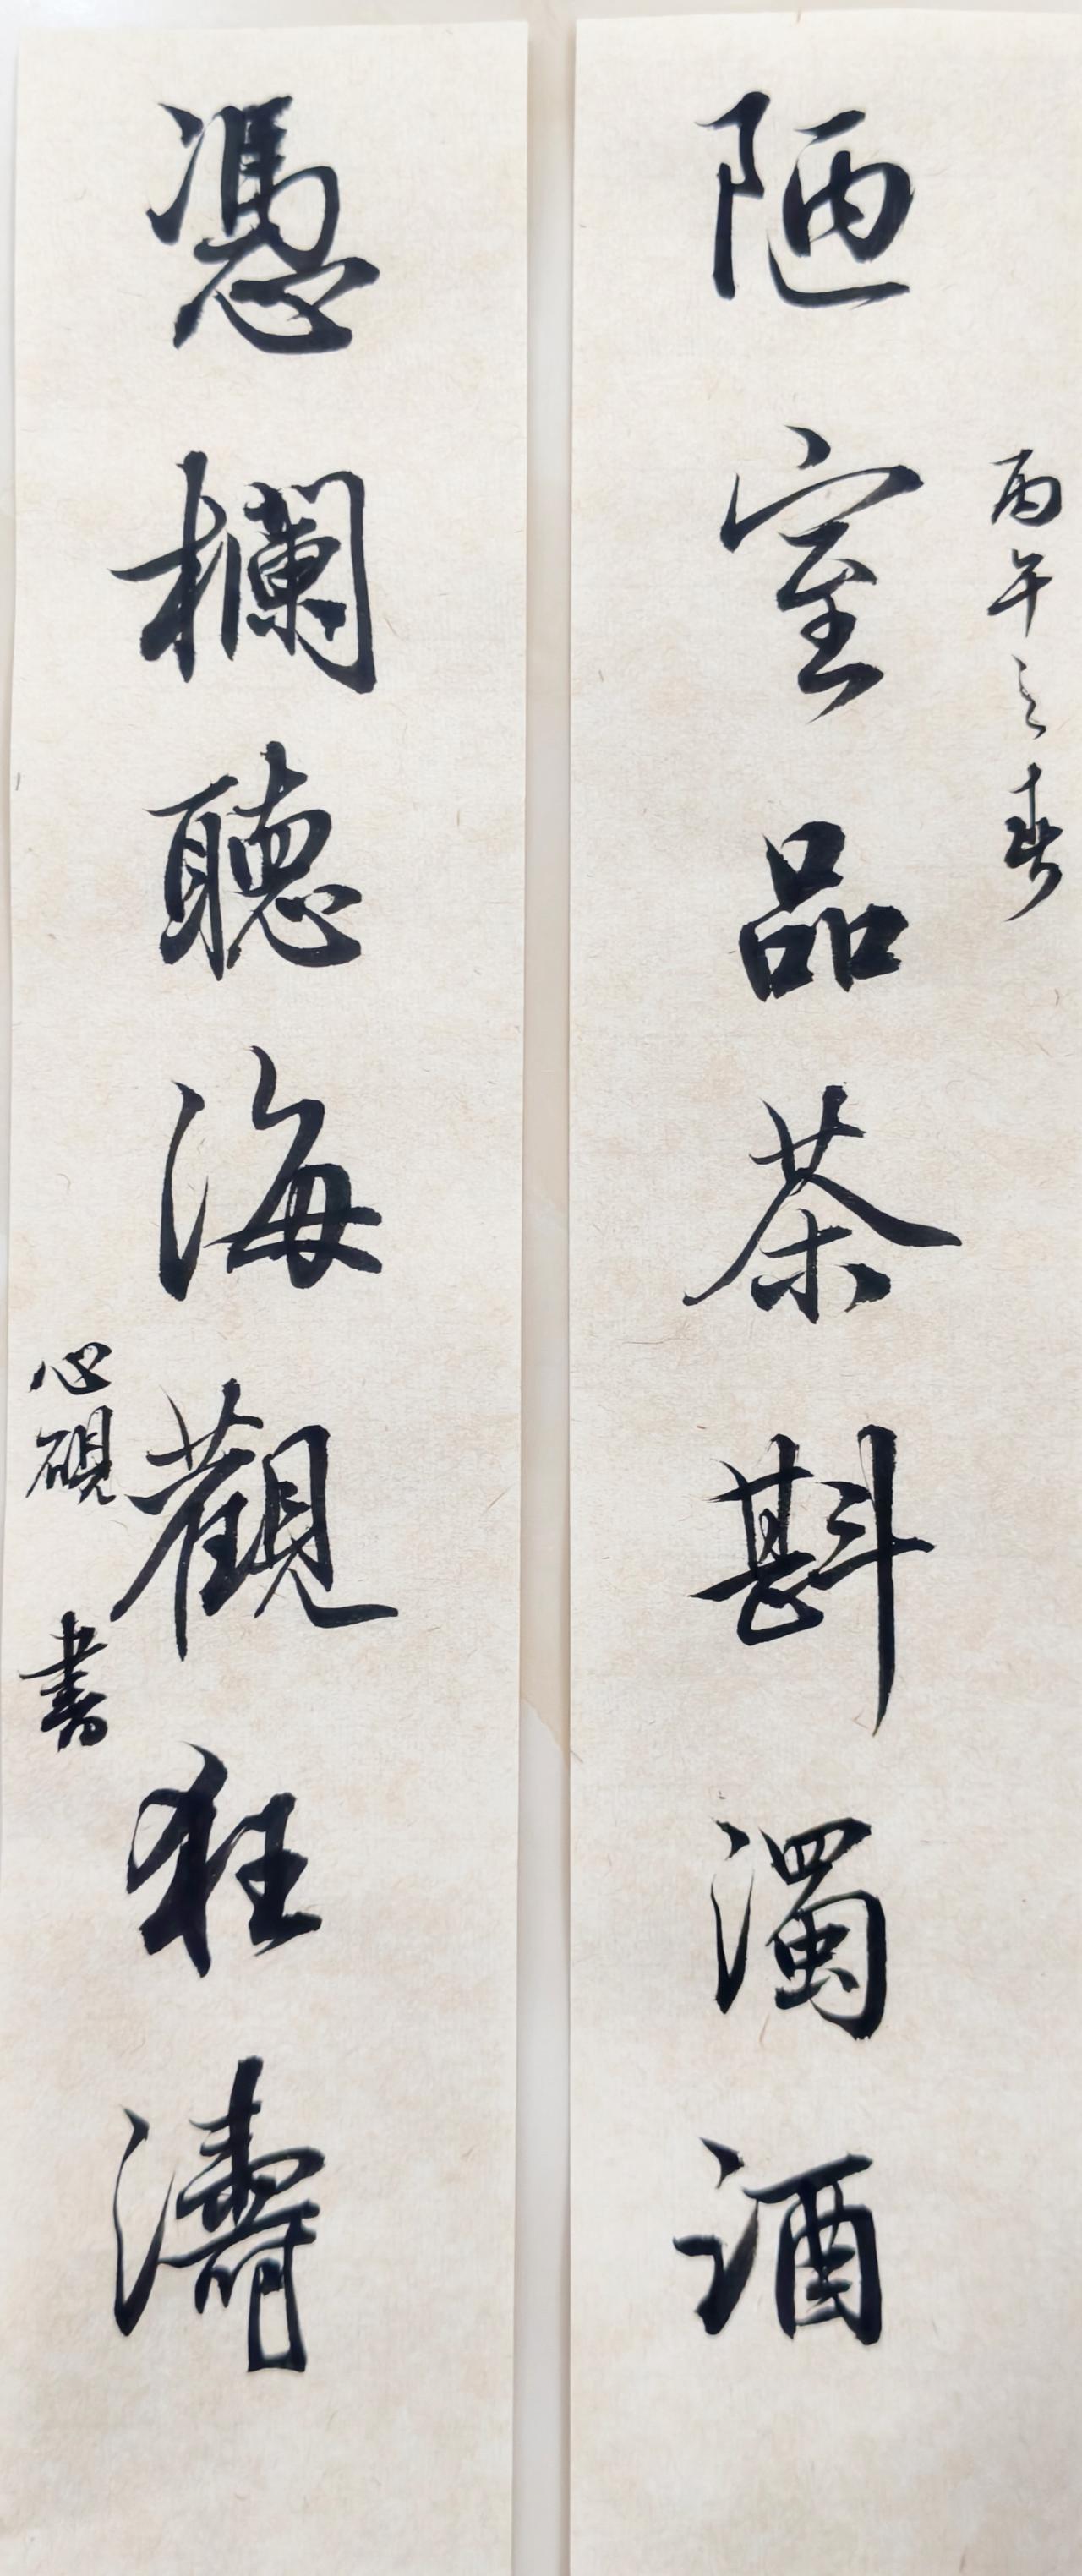 丙午之春
陋室品茶斟濁酒
憑欄聽海觀狂濤
心硯書